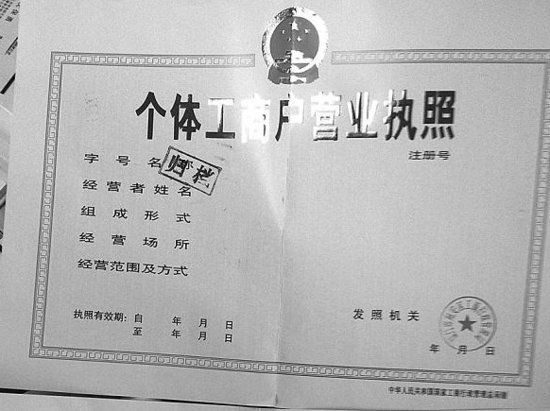 个体工商户营业执照
注册号
字号名称
归档
经营者姓名
组成形式
经营场所
经营范围及方式
执照有效期：自 年 月 日
至 年 月 日
发照机关
年 月 日
中华人民共和国国家工商行政管理总局制